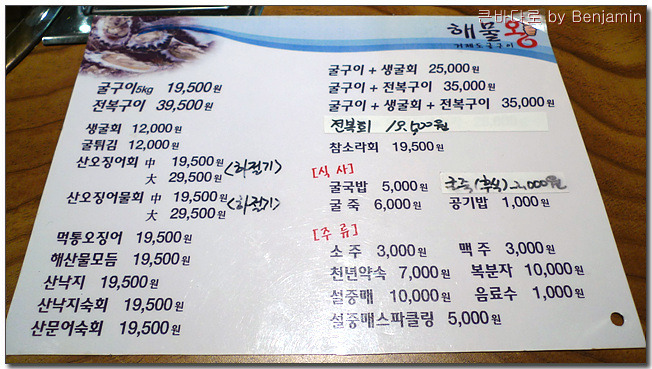 큰바다로 by Benjamin
해물왕
거제도굴구이
굴구이5kg 19,500원
전복구이 39,500원
생굴회 12,000원
굴튀김 12,000원
산오징어회 中 19,500원 <하절기>
大 29,500원
산오징어물회 中 19,500원 <하절기>
大 29,500원
먹통오징어 19,500원
해산물모듬 19,500원
산낙지 19,500원
산낙지숙회 19,500원
산문어숙회 19,500원
굴구이 + 생굴회 25,000원
굴구이 + 전복구이 35,000원
굴구이 + 생굴회 + 전복구이 35,000원
전복회 18,500원
참소라회 19,500원
[식 사]
굴국밥 5,000원 굴죽 (후식) 2,000원
굴 죽 6,000원 공기밥 1,000원
[주 류]
소 주 3,000원 맥 주 3,000원
천년약속 7,000원 복분자 10,000원
설중매 10,000원 음료수 1,000원
설중매스파클링 5,000원